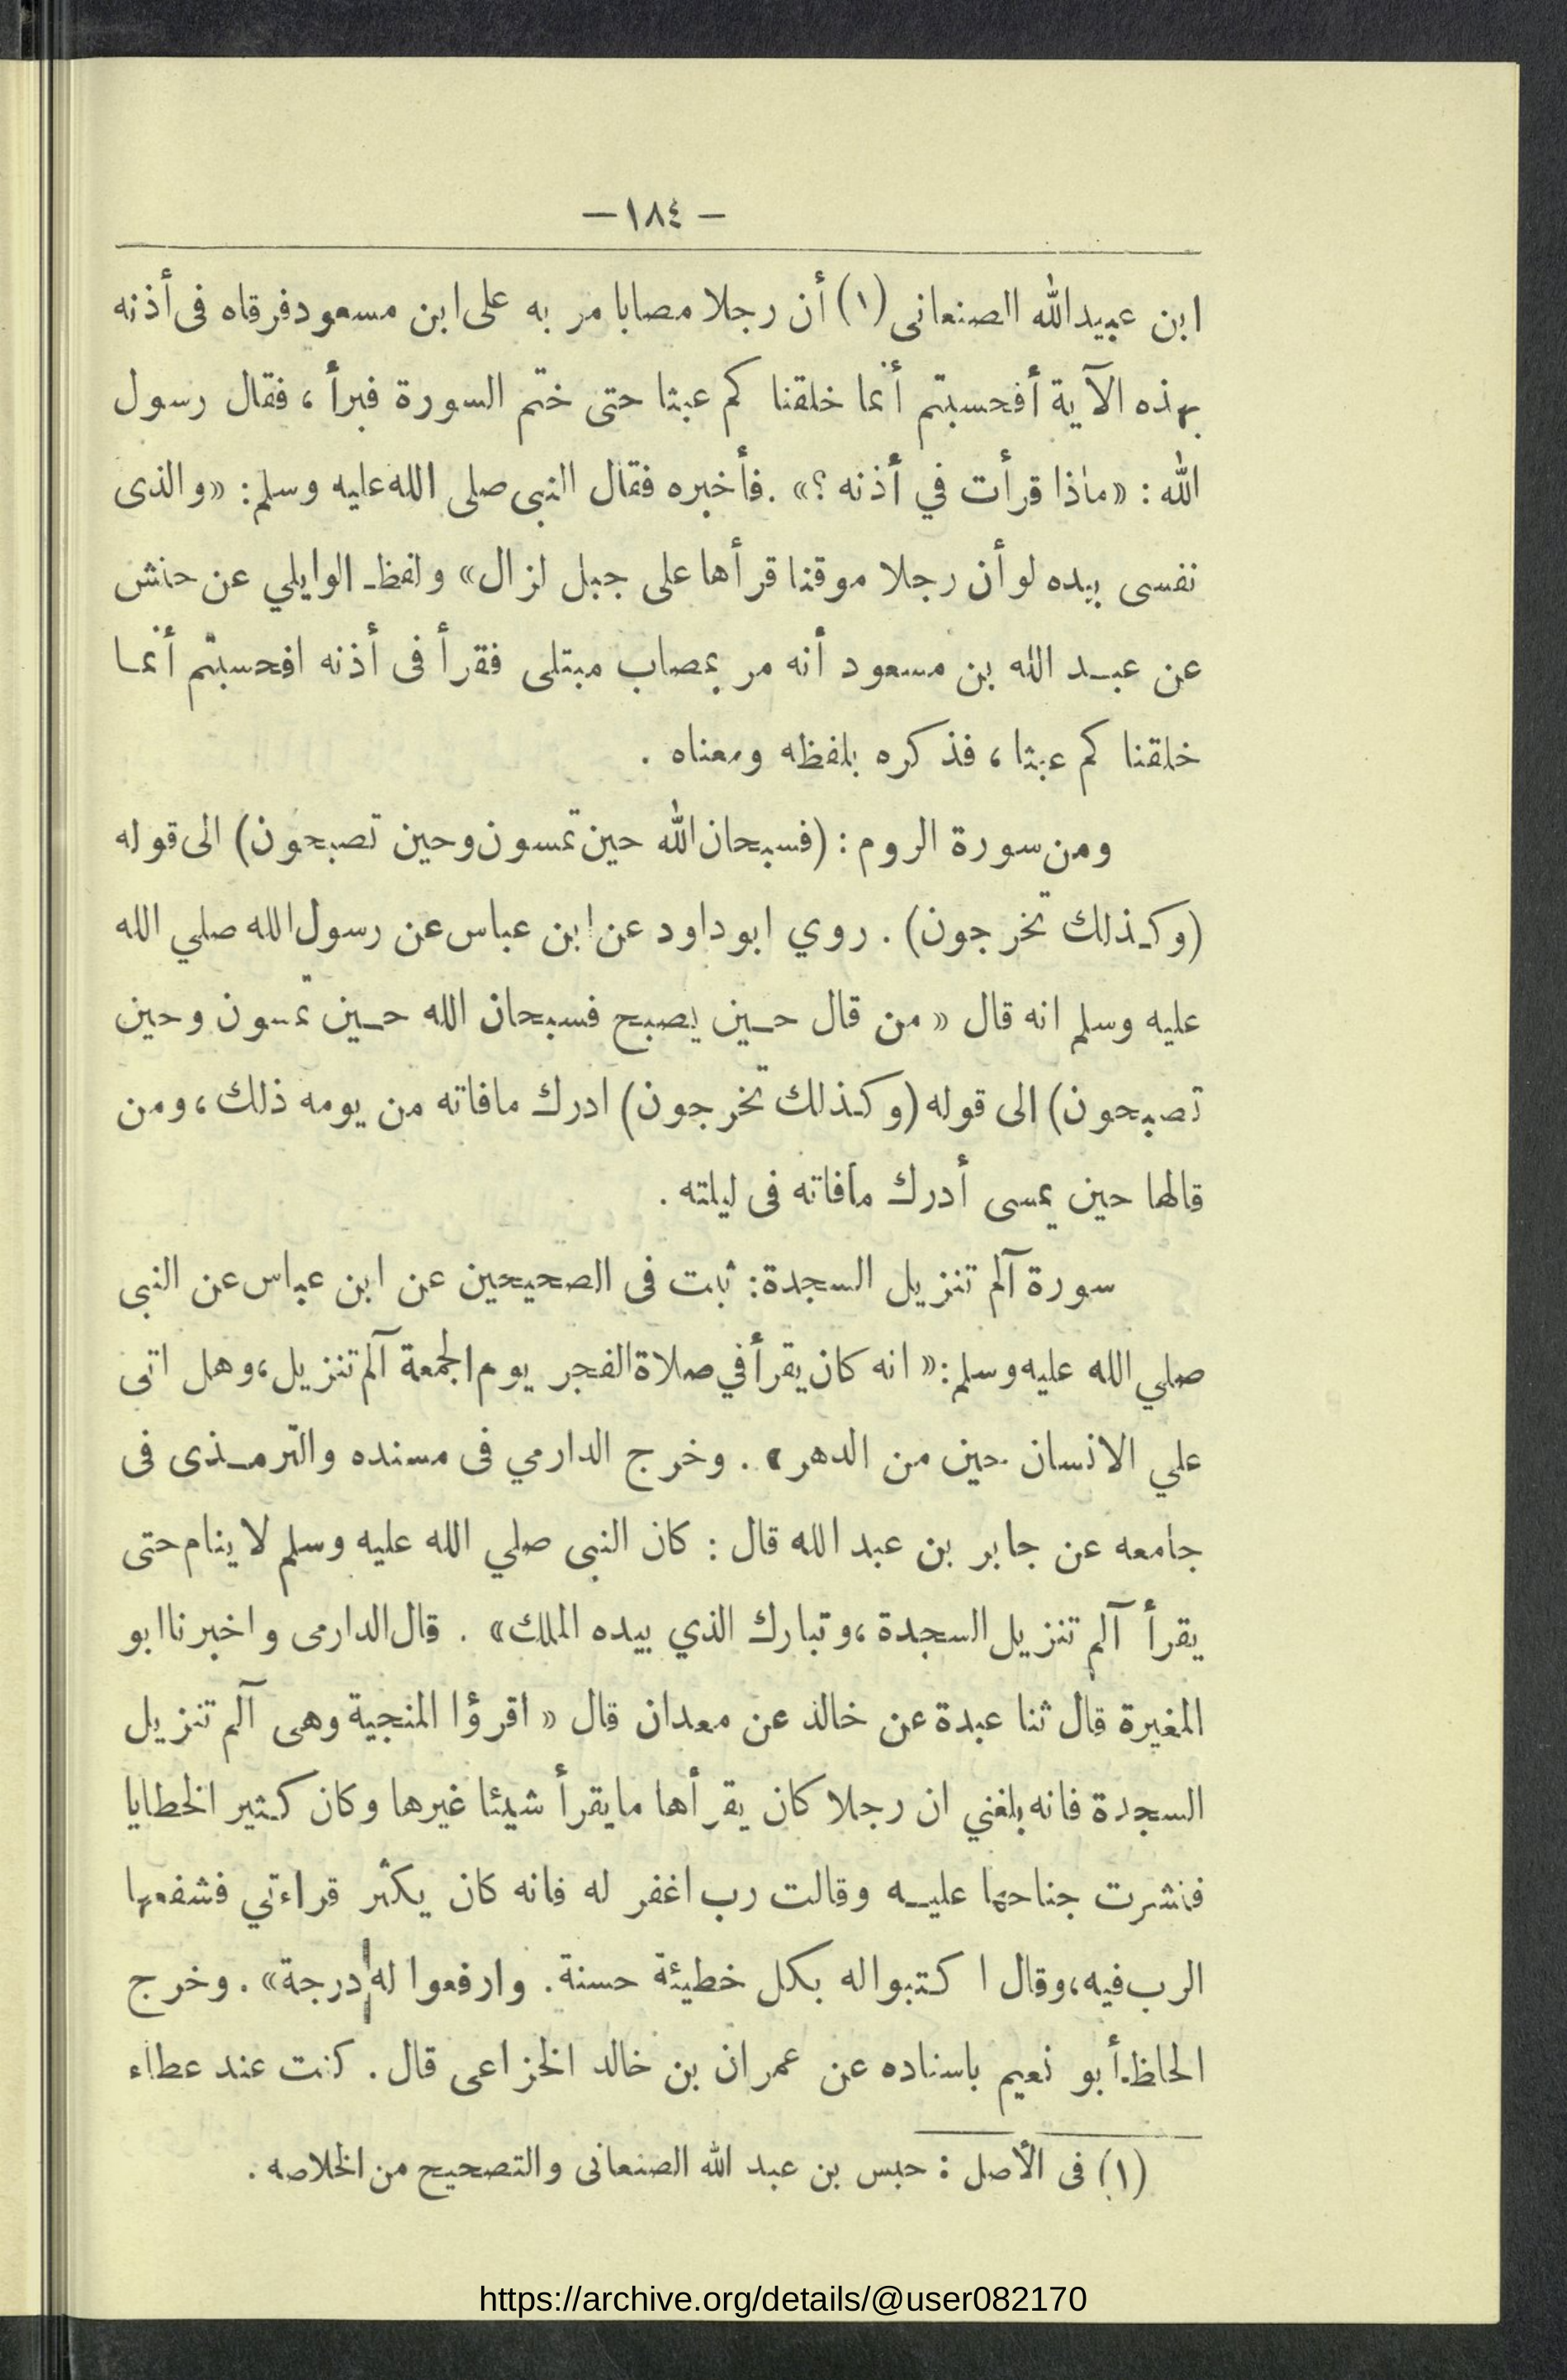 — ١٨٤ —
ابن عبيد الله الصنعانى (١) أن رجلا مصابا مر به على ابن مسعود فرقاه فى أذنه
بهذه الآية أفحسبتم أنما خلقنا كم عبثا حتى ختم السورة فبرأ ، فقال رسول
الله : «ماذا قرأت في أذنه ؟» . فأخبره فقال النبى صلى الله عليه وسلم: «والذى
نفسى بيده لو أن رجلا موقنا قرأها على جبل لزال» ولفظ الوايلي عن حنش
عن عبد الله بن مسعود أنه مر بمصاب مبتلى فقرأ فى أذنه افحسبتم أنما
خلقنا كم عبثا ، فذكره بلفظه ومعناه .
ومن سورة الروم : (فسبحان الله حين تمسون وحين تصبحون) الى قوله
(وكذلك تخرجون) . روي ابو داود عن ابن عباس عن رسول الله صلي الله
عليه وسلم انه قال « من قال حين يصبح فسبحان الله حين تمسون وحين
تصبحون) الى قوله (وكذلك تخرجون) ادرك مافاته من يومه ذلك ، ومن
قالها حين يمسى أدرك مافاته فى ليلته .
سورة آلم تنزيل السجدة: ثبت فى الصحيحين عن ابن عباس عن النبى
صلي الله عليه وسلم: « انه كان يقرأ في صلاة الفجر يوم الجمعة آلم تنزيل ، وهل اتى
علي الانسان حين من الدهر » . وخرج الدارمي فى مسنده والترمذى فى
جامعه عن جابر بن عبد الله قال : كان النبى صلي الله عليه وسلم لا ينام حتى
يقرأ آلم تنزيل السجدة ، وتبارك الذي بيده الملك» . قال الدارمى واخبرنا ابو
المغيرة قال ثنا عبدة عن خالد عن معدان قال « اقرؤا المنجية وهى آلم تنزيل
السجدة فانه بلغني ان رجلا كان يقرأها مايقرأ شيئا غيرها وكان كثير الخطايا
فنشرت جناحها عليه وقالت رب اغفر له فانه كان يكثر قراءتي فشفعها
الرب فيه ، وقال ا كتبوا له بكل خطيئة حسنة . وارفعوا له درجة» . وخرج
الحاظ أبو نعيم باسناده عن عمران بن خالد الخزاعى قال . كنت عند عطاء
(١) فى الأصل : حبس بن عبد الله الصنعانى والتصحيح من الخلاصه .
https://archive.org/details/@user082170